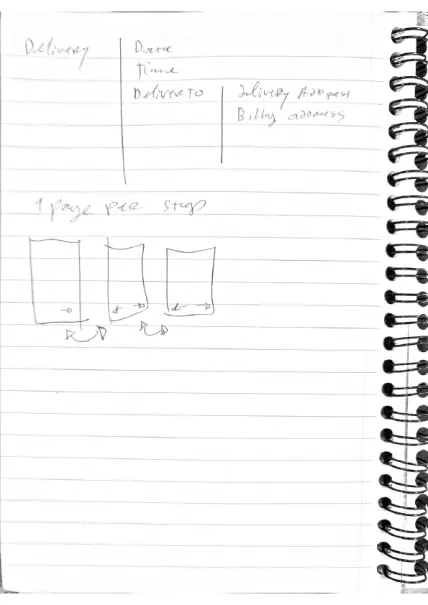 Delivery
Date
Time
Deliver to
Delivery Address
Billing address
1 page per step